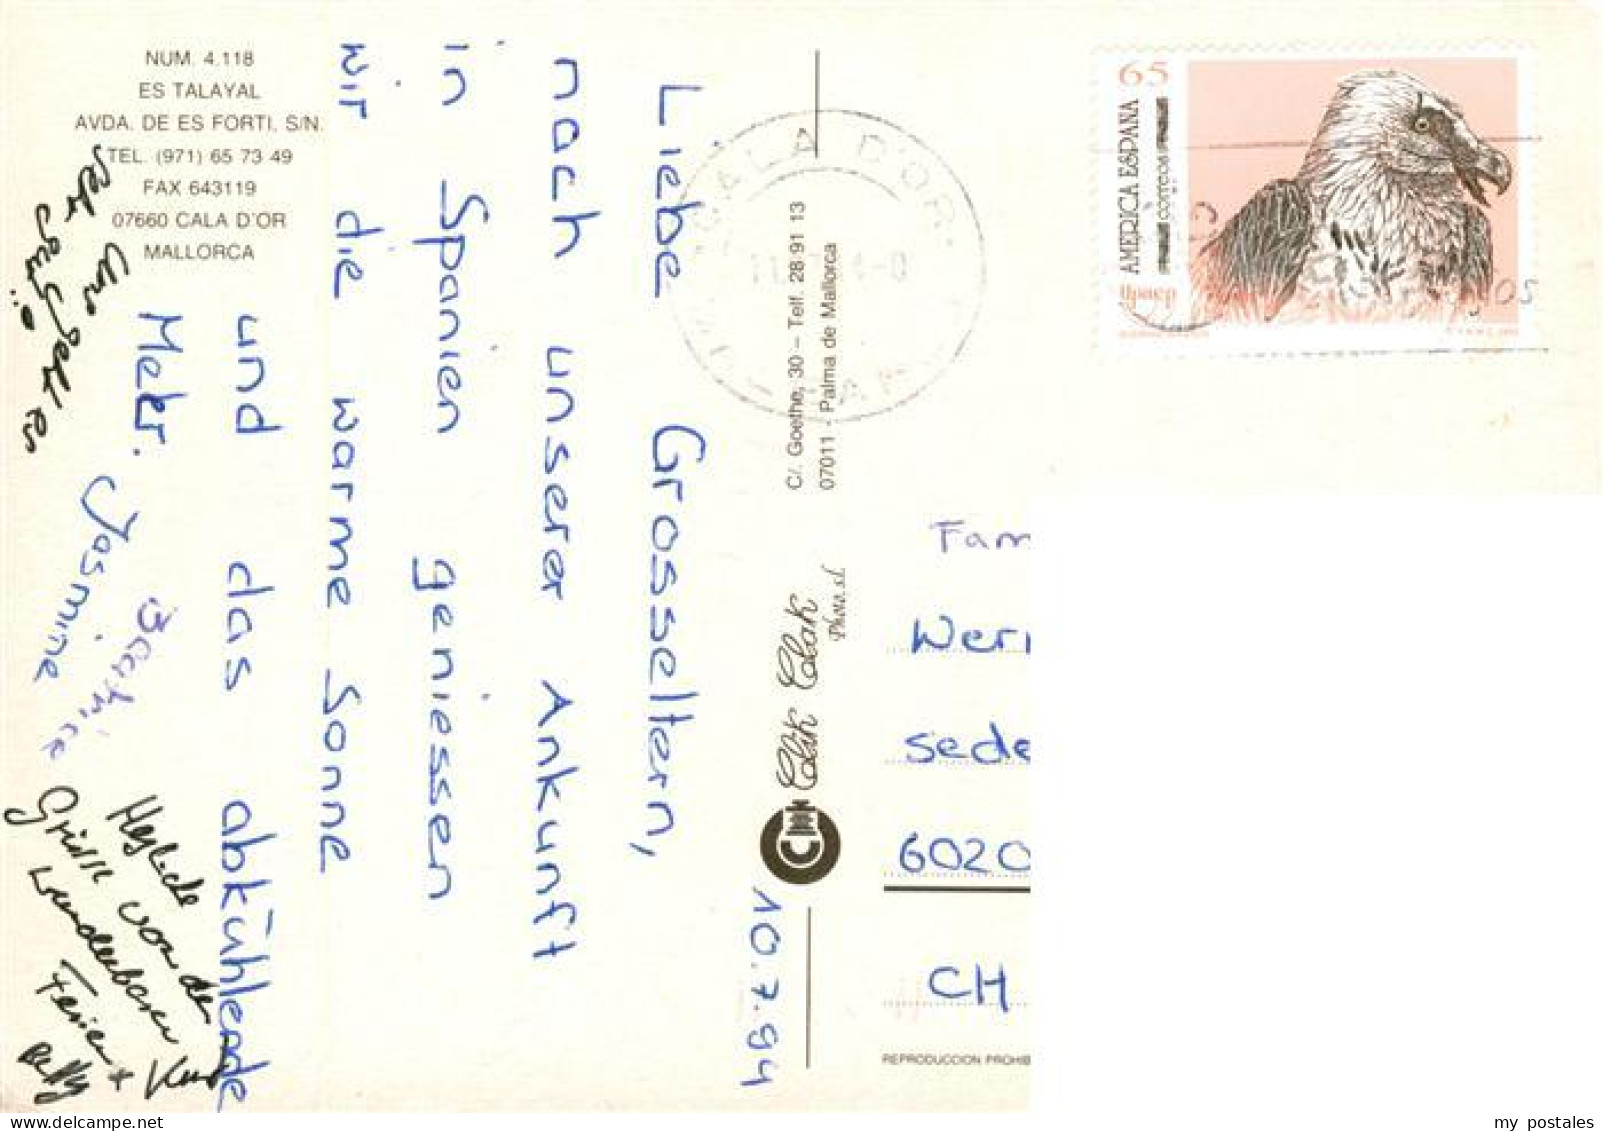 NUM. 4.118
ES TALAYAL
AVDA. DE ES FORTI, S/N.
TEL. (971) 65 73 49
FAX 643119
07660 CALA D'OR
MALLORCA
10.7.94
Liebe Grosseltern,
nach unserer Ankunft
in Spanien geniessen
wir die warme Sonne
und das abkühlende
Meer. Jasmine
Beatrice
Herzliche
Grüsse von den
wunderbaren
Ferien +
Kurt
C/. Goethe, 30 – Telf. 28 91 13
07011 - Palma de Mallorca
Clik Clak
Photo, s.l.
CALA D'OR
65
AMERICA ESPAÑA
CORREOS
Fam
Wer
sede
6020
CH
REPRODUCCION PROHIB
my postales